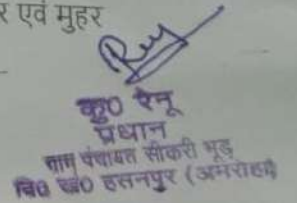 र एवं मुहर
कु0 रेनू
प्रधान
ग्राम पंचायत सीकरी भूड़
वि0 ख0 हसनपुर (अमरोहा)